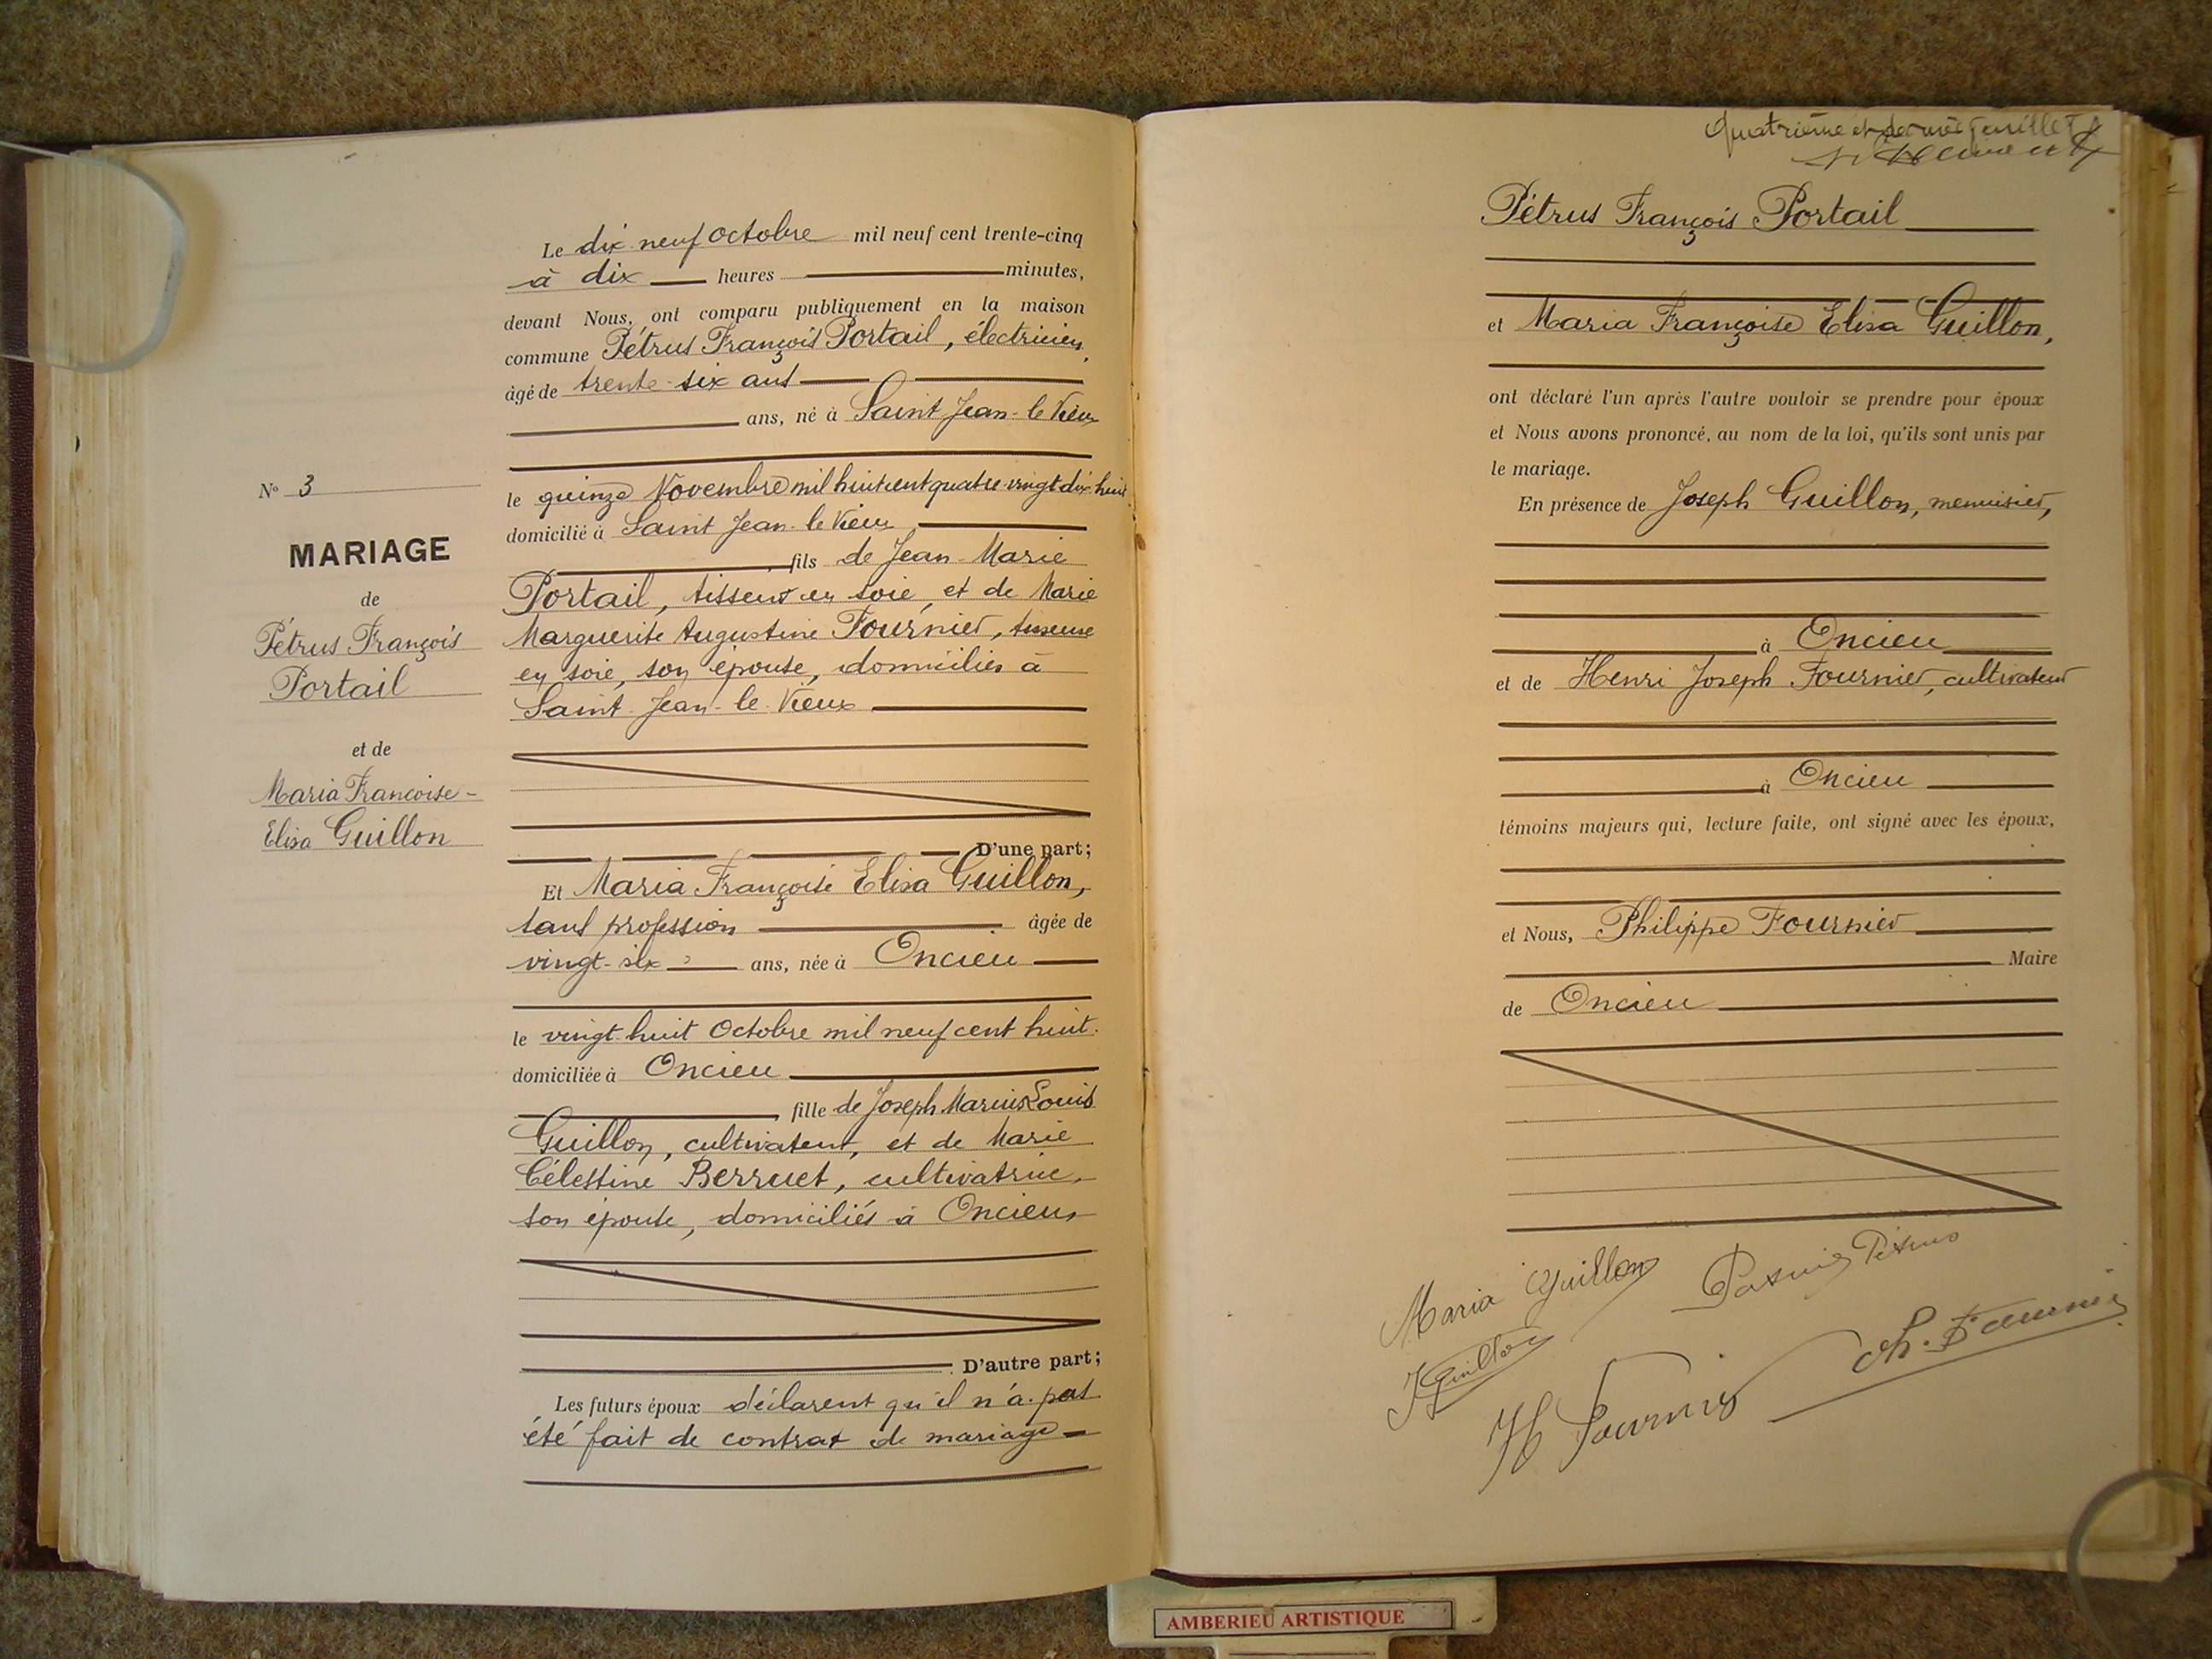 N° 3
MARIAGE
de
Pétrus François
Portail
et de
Maria Françoise-
Elisa Guillon
Le dix neuf Octobre mil neuf cent trente-cinq
à dix heures minutes,
devant Nous, ont comparu publiquement en la maison
commune Pétrus François Portail, électricien,
âgé de trente-six ans
ans, né à Saint Jean-le Vieux
le quinze Novembre mil huit cent quatre-vingt dix-huit
domicilié à Saint Jean-le Vieux,
fils de Jean-Marie
Portail, tisseur en soie, et de Marie
Marguerite Augustine Fournier, tisseuse
en soie, son épouse, domiciliés à
Saint-Jean-le-Vieux
D'une part;
Et Maria Françoise Elisa Guillon,
sans profession âgée de
vingt-six ans, née à Oncieu
le vingt-huit Octobre mil neuf cent huit.
domiciliée à Oncieu
fille de Joseph Marius Louis
Guillon, cultivateur, et de Marie
Célestine Berruet, cultivatrice,
son épouse, domiciliés à Oncieu,
D'autre part;
Les futurs époux déclarent qu'il n'a pas
été fait de contrat de mariage
Quatrième et dernier feuillet
Pétrus François Portail
et Maria Françoise Elisa Guillon,
ont déclaré l'un après l'autre vouloir se prendre pour époux
et Nous avons prononcé, au nom de la loi, qu'ils sont unis par
le mariage.
En présence de Joseph Guillon, menuisier,
à Oncieu
et de Henri Joseph Fournier, cultivateur
à Oncieu
témoins majeurs qui, lecture faite, ont signé avec les époux,
et Nous, Philippe Fournier
Maire
de Oncieu
Maria Guillon
Pétrus
J Guillon
H Fournier
Ph. Fournier
AMBERIEU ARTISTIQUE